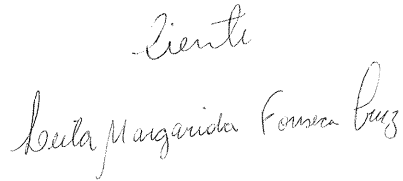 Ciente
Leila Margarida Fonseca Cruz